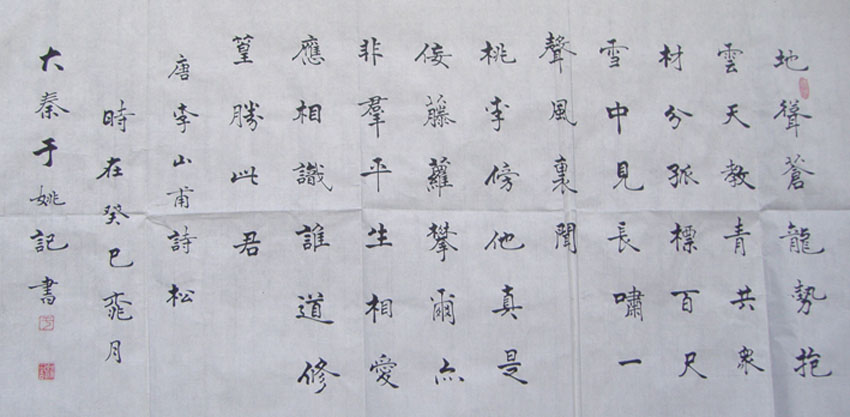 地聳蒼龍勢抱
雲天教青共衆
材分孤標百尺
雪中見長嘯一
聲風裏聞
桃李傍他真是
佞藤蘿攀爾亦
非羣平生相愛
應相識誰道修
篁勝此君
唐李山甫詩松
時在癸巳月
大秦于姚記書